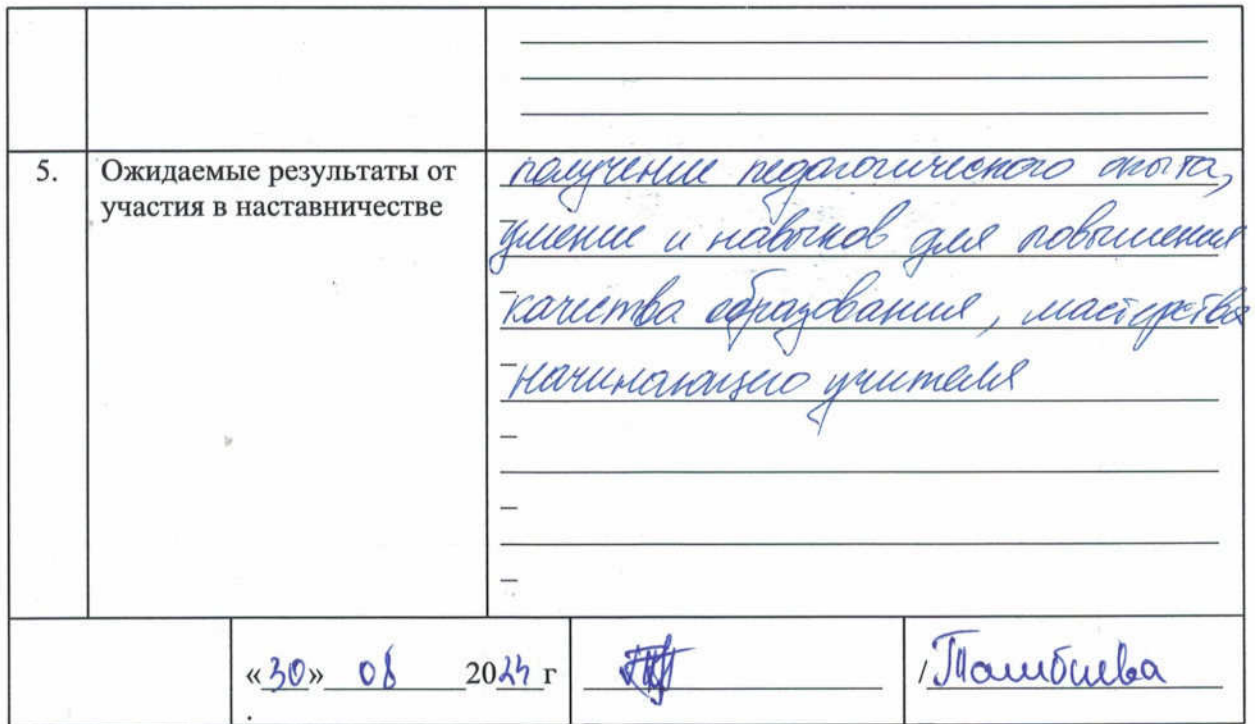 5. Ожидаемые результаты от
участия в наставничестве
получение педагогического опыта,
умение и навыков для повышения
качества образования, мастерства
начинающего учителя
«30» 08 2024 г
.
/Тамбиева